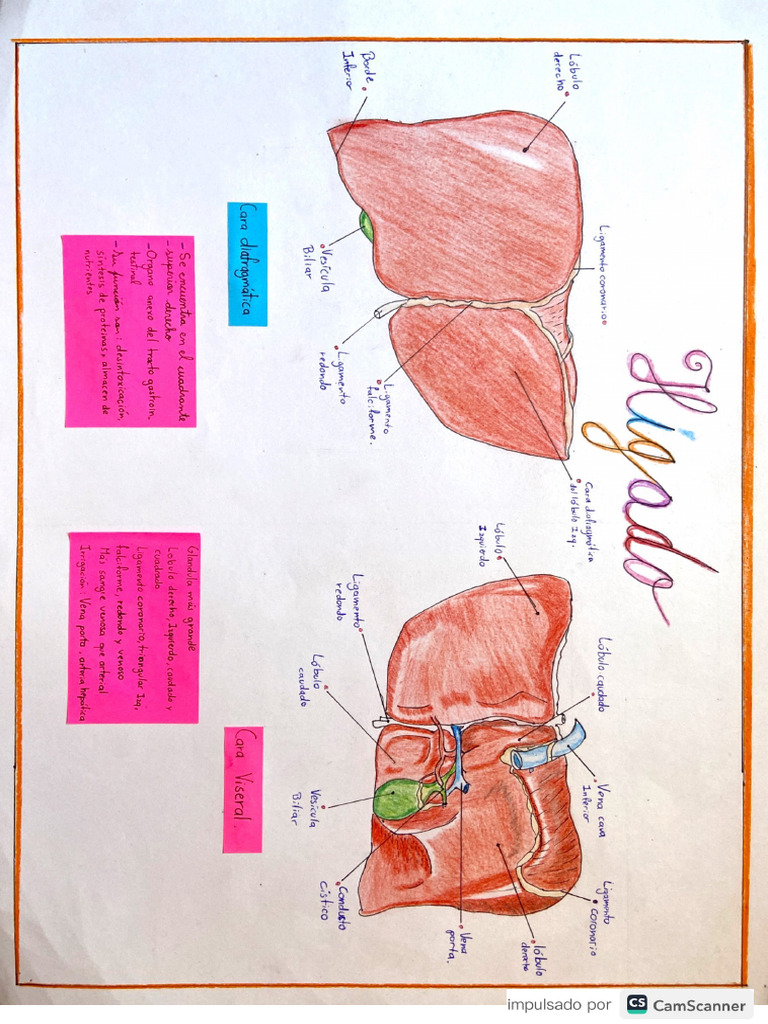 Hígado
Lóbulo
derecho
Borde
Inferior
Ligamento coronario
Vesícula
Biliar
Ligamento
redondo
Ligamento
falciforme.
Cara diafragmática
del lóbulo Izq.
Cara diafragmática
- Se encuentra en el cuadrante
superior derecho
- Organo anexo del tracto gastroin.
testinal
- su función son: desintoxicación,
síntesis de proteínas, almacen de
nutrientes
Lóbulo
Izquierdo
Ligamento
redondo
Lóbulo
caudado
Lóbulo caudado
Vena cava
Inferior
Ligamento
coronario
Vesícula
Biliar
Conducto
Cístico
Vena
porta.
lóbulo
derecho
Cara Viseral.
Glandula más grande
Lobulo derecho, Izquierdo, caudado y
cuadrado
Ligamento coronario, triangular Izq,
falciforme, redondo y venoso
Mas sangre venosa que arterial
Irrigación: Vena porta, arteria hepática
impulsado por CS CamScanner